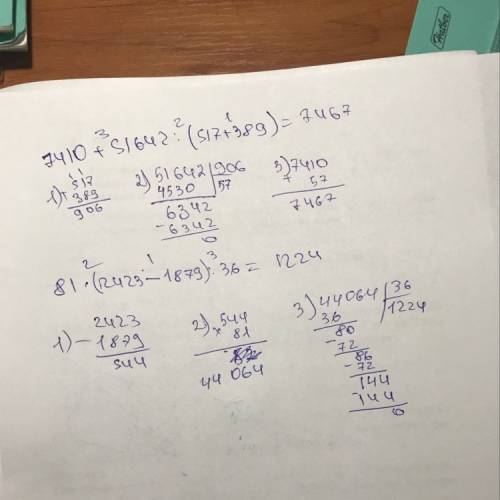 7410 + 51642 : (517+389) = 7467
3 2 1
1) + 517
389
906
2) 51642 | 906
4530 57
6342
- 6342
0
3) 7410
+ 57
7467
81 · (2423 - 1879) : 36 = 1224
2 1 3
1) - 2423
1879
544
2) × 544
81
44 064
3) 44064 | 36
36 1224
80
- 72
86
- 72
144
144
0